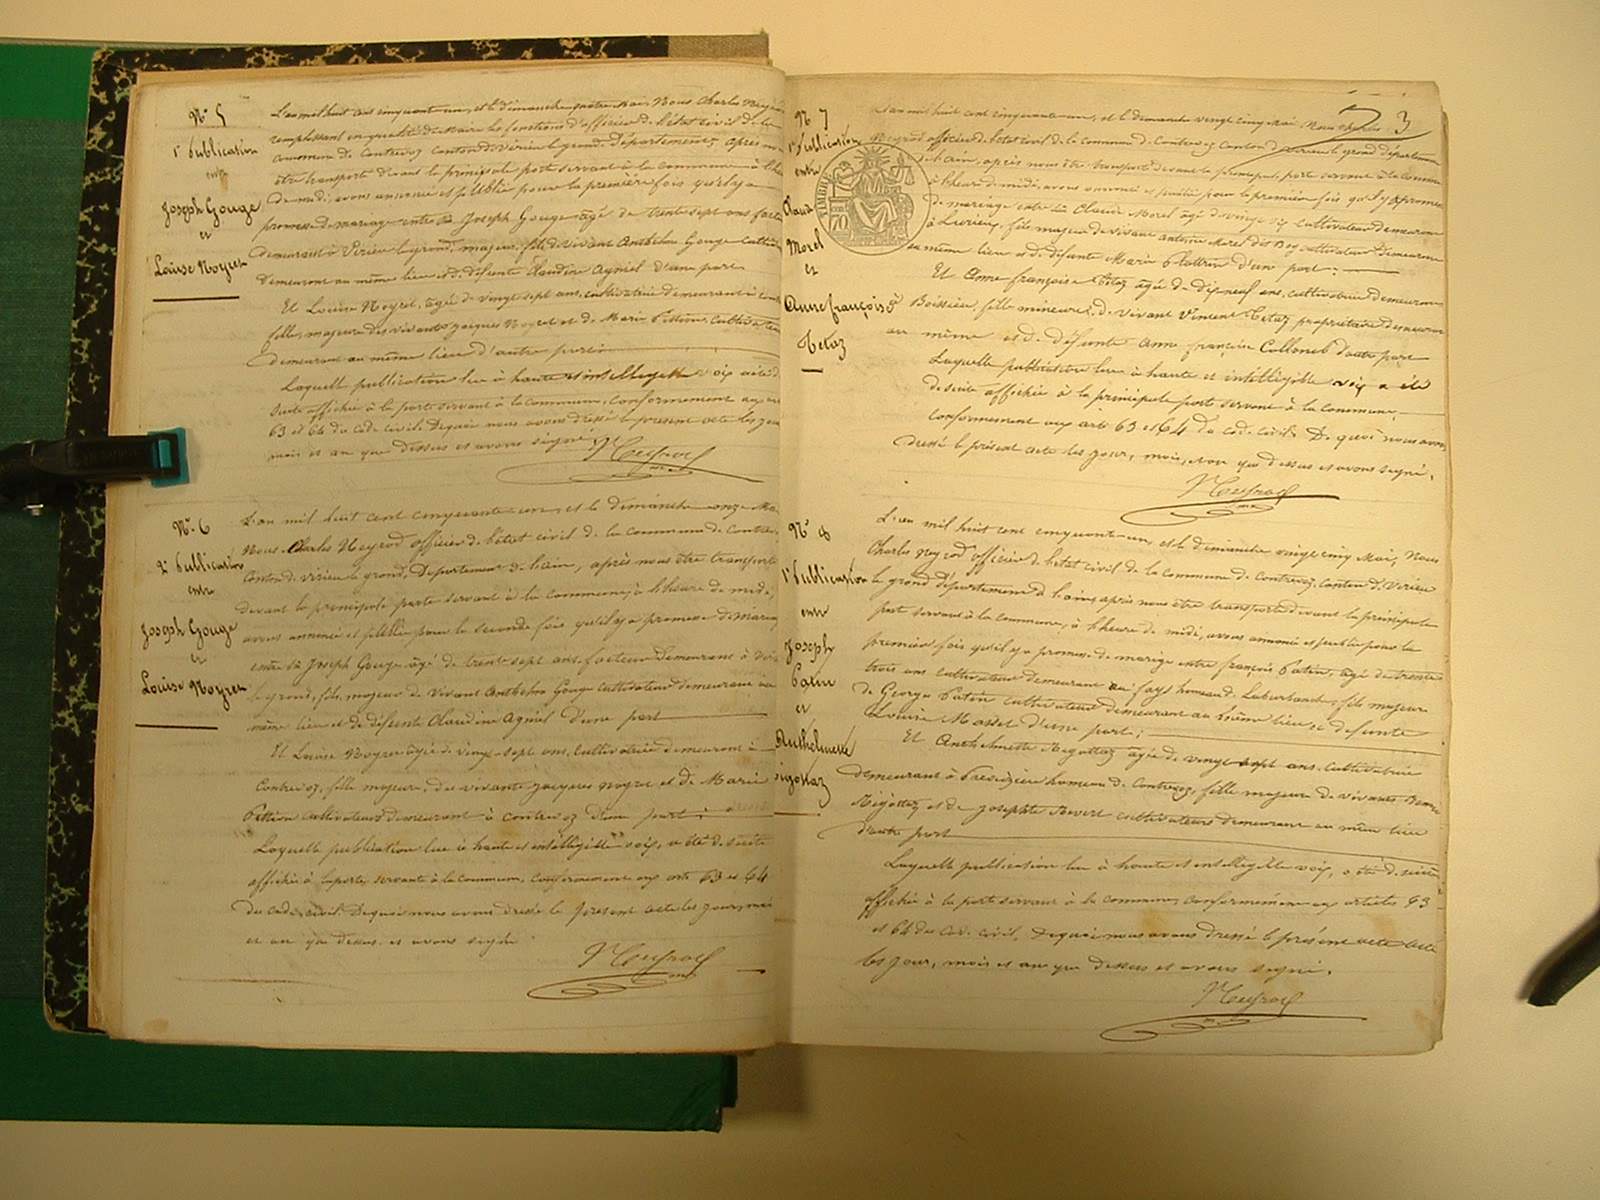 N° 5
1e Publication
entre
Joseph Gouge
et
Louise Noyret
L'an mil huit cent cinquante un, et le dimanche quatre Mai, Nous Charles Neyrod
remplissant en qualité de Maire les fonctions d'officier de l'état civil de la
commune de Contrevoz canton de Virieu le grand, Département, après nous
être transporté devant la principale porte servant à la commune à l'heure
de midi, avons annoncé et publié pour la première fois qu'il y a
promesse de mariage entre Sr Joseph Gouge âgé de trente sept ans facteur
demeurant à Virieu le grand, majeur, fils de vivant Anthelme Gouge cultivateur
demeurant au même lieu et de défunte Claudine Agniel d'une part
Et Louise Noyret, âgée de vingt sept ans, cultivatrice demeurant à
fille, majeure des vivants Jacques Noyret et de Marie Pettion, cultivateurs
demeurant au même lieu d'autre part
Laquelle publication lue à haute et intelligible voix a été de
suite affichée à la porte servant à la commune, conformément aux arts
63 et 64 du code civil. De quoi nous avons dressé le présent acte les jour
mois et an que dessus et avons signé.
Neyrod
N° 6
2e Publication
entre
Joseph Gouge
et
Louise Noyret
L'an mil huit cent cinquante un, et le dimanche onze Mai
Nous Charles Neyrod officier de l'état civil de la commune de Contrevoz
Canton de virieu le grand, Département de l'ain, après nous être transporté
devant la principale porte servant à la commune, à l'heure de midi,
avons annoncé et publié pour la seconde fois qu'il y a promesse de mariage
entre Sr Joseph Gouge âgé de trente sept ans, facteur demeurant à Virieu
le grand, fils, majeur de vivant Anthelme Gouge cultivateur demeurant au
même lieu et de défunte Claudine Agniel d'une part
Et Louise Noyret âgée de vingt sept ans, cultivatrice demeurant à
Contrevoz, fille majeure, des vivants Jacques Noyret et de Marie
Pettion cultivateurs demeurant à Contrevoz d'une part;
Laquelle publication lue à haute et intelligible voix, a été de suite
affichée à la porte servante à la commune, conformément aux arts 63 et 64
du code civil. De quoi nous avons dressé le présent acte les jour, mois
et an que dessus et avons signé
Neyrod
3
N° 7
1e Publication
entre
Claude
Morel
et
Anne françoise
Tetaz
TIMBRE
70
L'an mil huit cent cinquante un, et le dimanche vingt cinq Mai, Nous Charles
Neyrod officier de l'état civil de la commune de Contrevoz Canton de Virieu le grand département
de l'ain, après nous être transporté devant la principale porte servant à la commune
à l'heure de midi, avons annoncé et publié pour la première fois qu'il y a promesse
de mariage entre Sr Claude Morel âgé de vingt six cultivateur demeurant
à fils majeur de vivant antoine Morel dit Bey cultivateur demeurant
au même lieu et de défunte Marie d'une part;
Et Anne françoise Tetaz âgée de dix neuf ans, cultivatrice demeurant
à Boissieu, fille mineure, de vivant Vincent Tetaz propriétaire demeurant
au même et de défunte Anne françoise Collomb d'autre part
Laquelle publication lue à haute et intelligible voix a été
de suite affichée à la principale porte servant à la commune,
conformément aux arts 63 et 64 du code civil. De quoi nous avons
dressé le présent acte les jour, mois, et an que dessus et avons signé.
Neyrod
N° 8
1e Publication
entre
Joseph
Patin
et
Anthelmette
Rigottaz
L'an mil huit cent cinquante un, et le dimanche vingt cinq Mai, Nous
Charles Neyrod officier de l'état civil de la commune de Contrevoz, Canton de Virieu
le grand département de l'ain, après nous être transporté devant la principale
porte servant à la commune, à l'heure de midi, avons annoncé et publié pour la
première fois qu'il y a promesse de mariage entre françois Patin, âgé de trente
trois ans cultivateur demeurant au fays hameau de fils majeur
de George Patin cultivateur demeurant au même lieu et de défunte
Louise Masset d'une part;
Et Anthelmette Rigottaz âgée de vingt sept ans, cultivatrice
demeurant à Preveizieu hameau de Contrevoz, fille majeure de vivants
Rigottaz et de Josephte cultivateurs demeurant au même lieu
d'autre part
Laquelle publication lue à haute et intelligible voix, a été de suite
affichée à la porte servant à la commune, conformément aux articles 63
et 64 du code civil, De quoi nous avons dressé le présent acte
les jour, mois et an que dessus et avons signé.
Neyrod